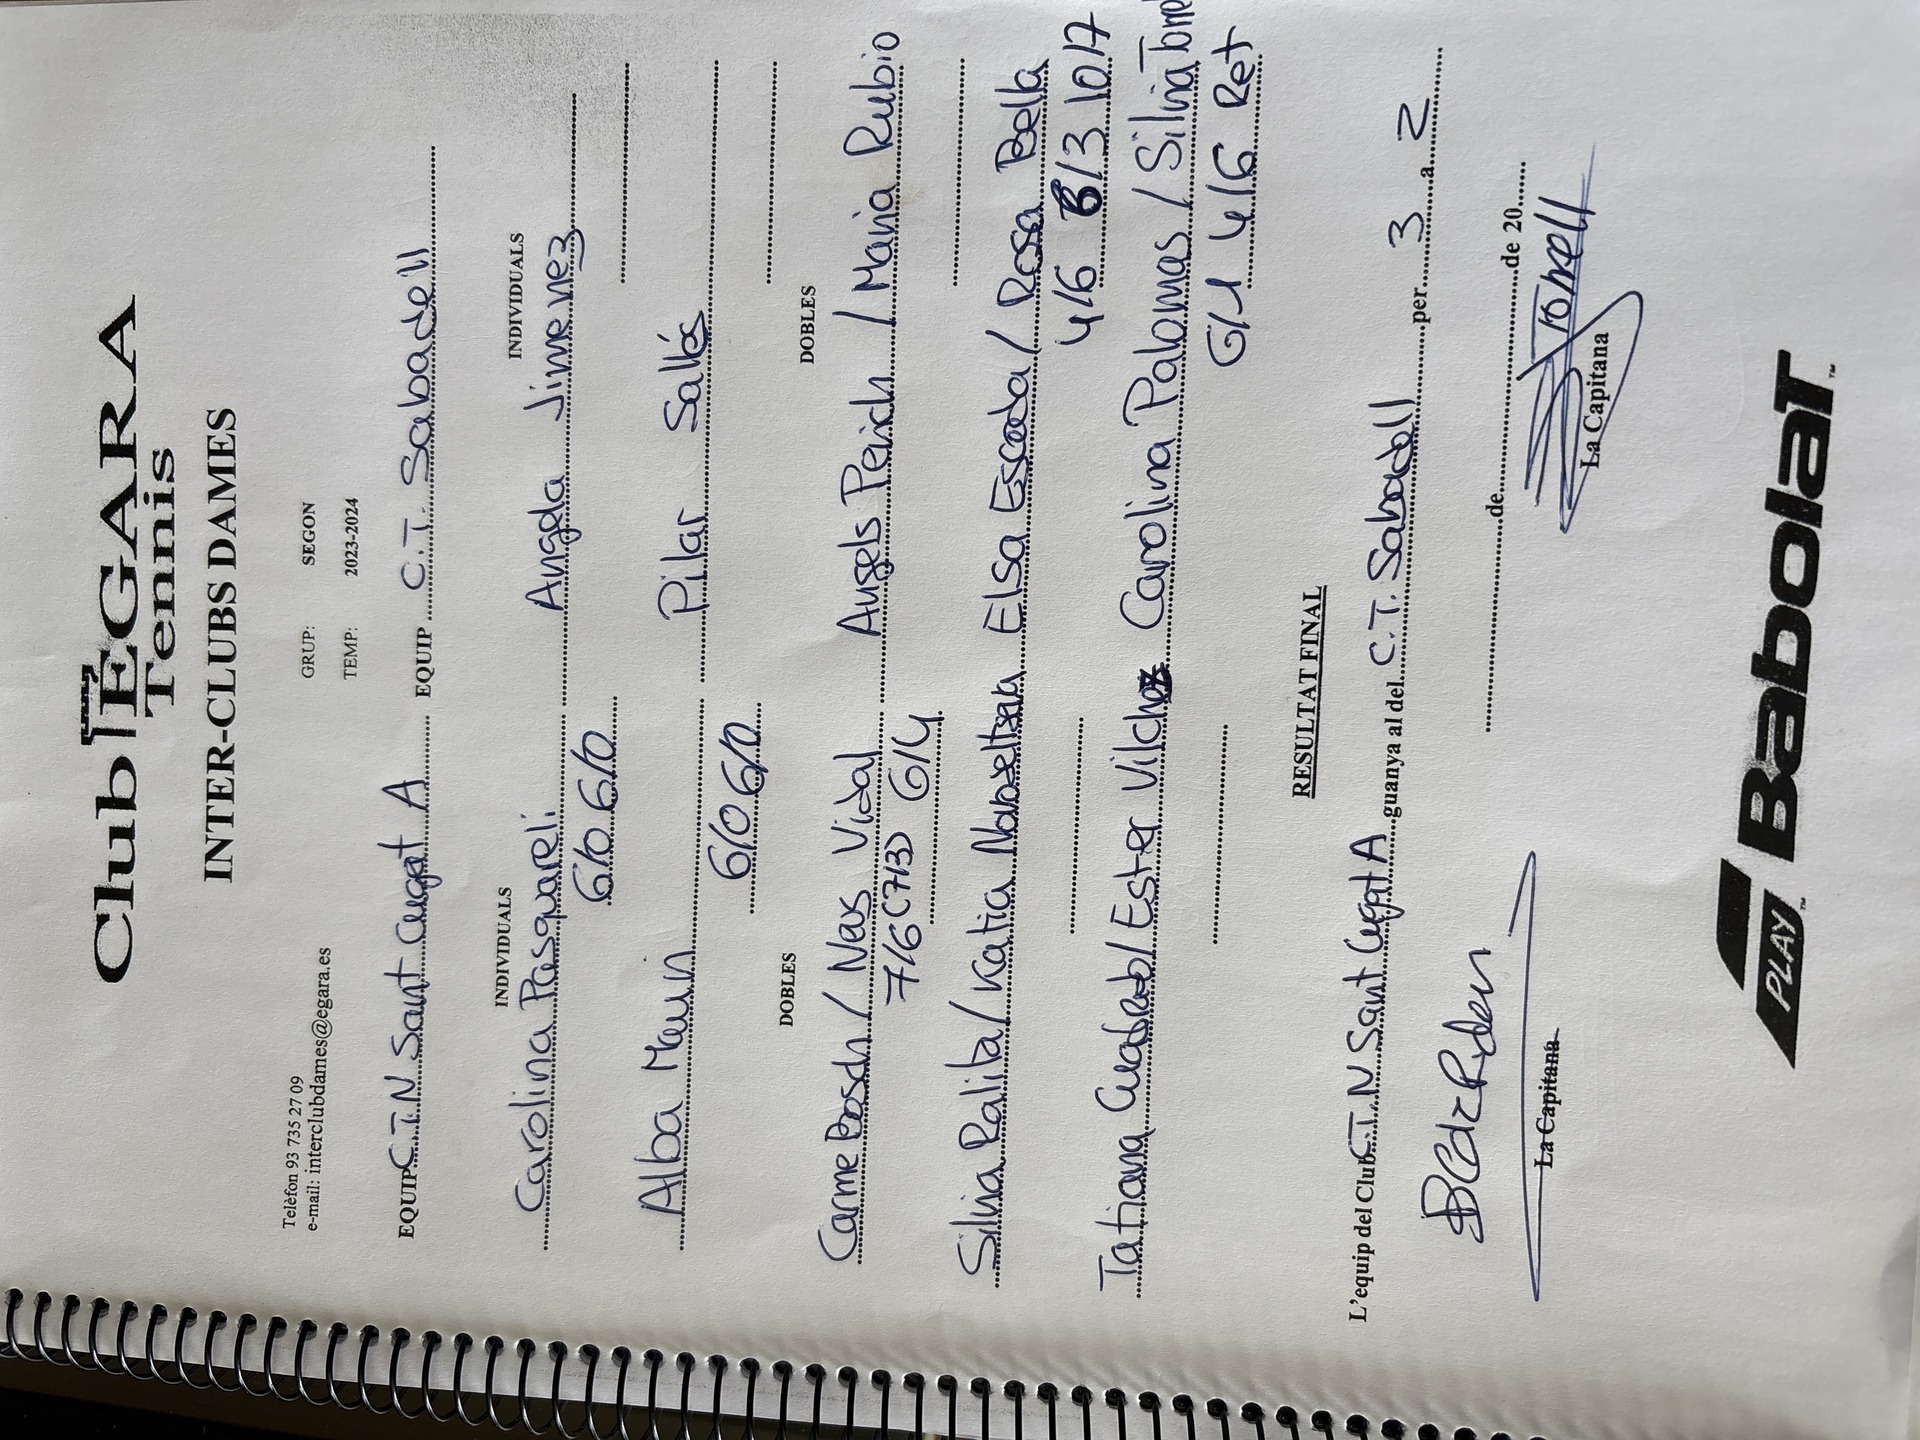 Club EGARA
Tennis
INTER-CLUBS DAMES
Telèfon 93 735 27 09
e-mail: interclubdames@egara.es
GRUP: SEGON
TEMP: 2023-2024
EQUIP C.T.N Sant Cugat A EQUIP C.T. Sabadell
INDIVIDUALS INDIVIDUALS
Carolina Pasquareli Angela Jimenez
6/0 6/0
Alba Maurin Pilar Sallés
6/0 6/0
DOBLES DOBLES
Carme Bosch / Neus Vidal Angels Perich / Maria Rubio
7/6(7/3) 6/4
Silvia Ralita / Katia Elsa Escoda / Rosa Bella
4/6 6/3 10/7
Tatiana Cuadrado / Ester Vilchez Carolina Palomas / Silvia Torrell
6/1 4/6 Ret
RESULTAT FINAL
L'equip del Club C.T.N Sant Cugat A guanya al del C.T. Sabadell per 3 a 2
de de 20
La Capitana La Capitana
PLAY Babolat